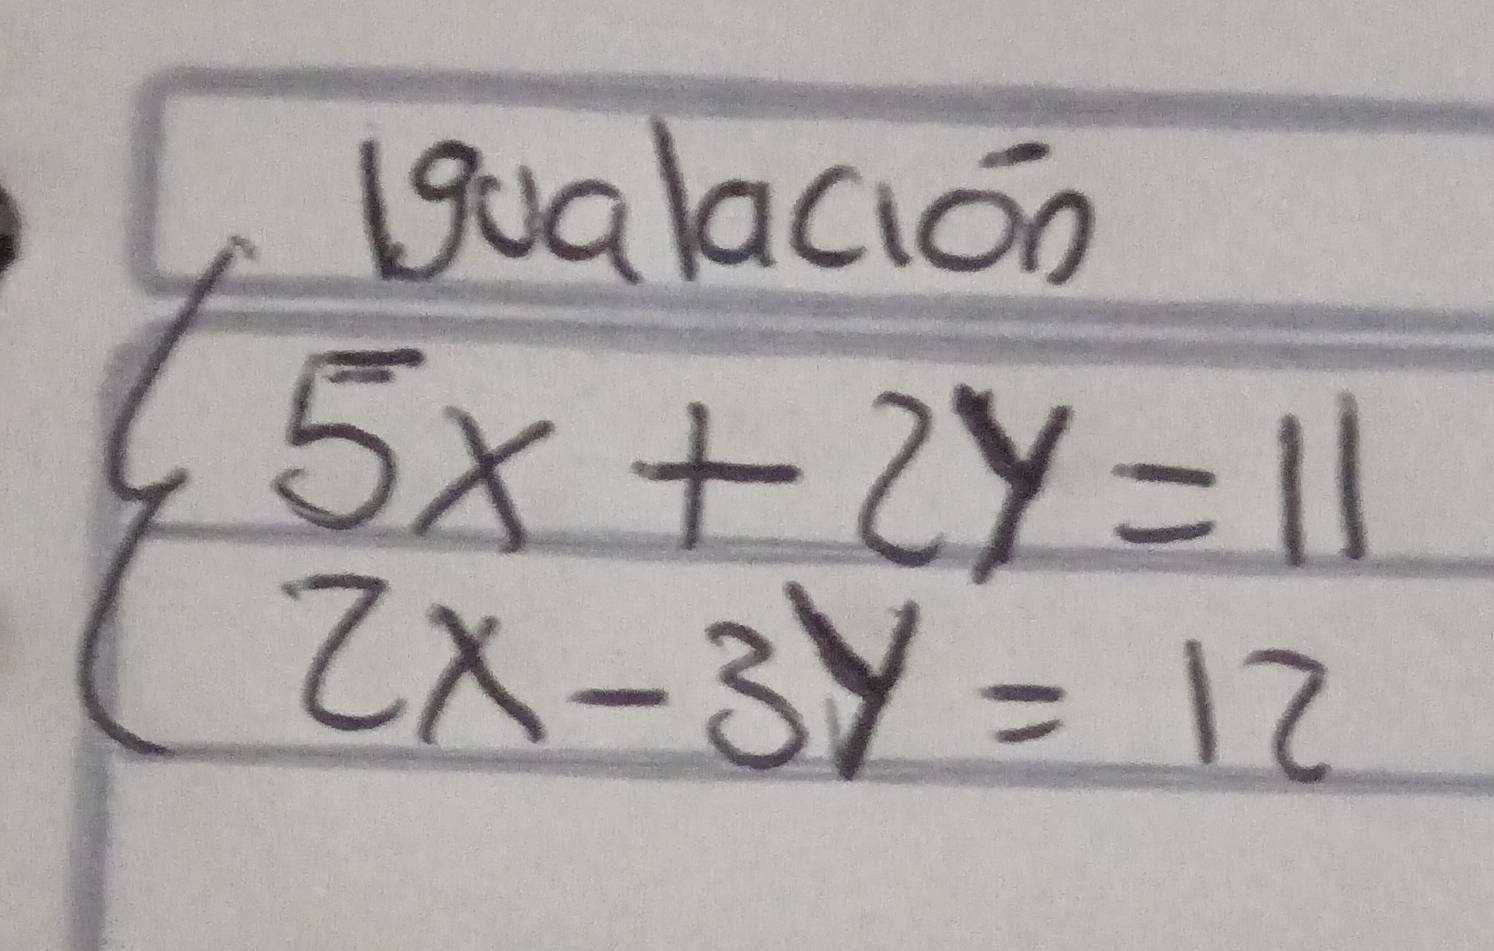 Igualación
5x + 2y = 11
2x - 3y = 12